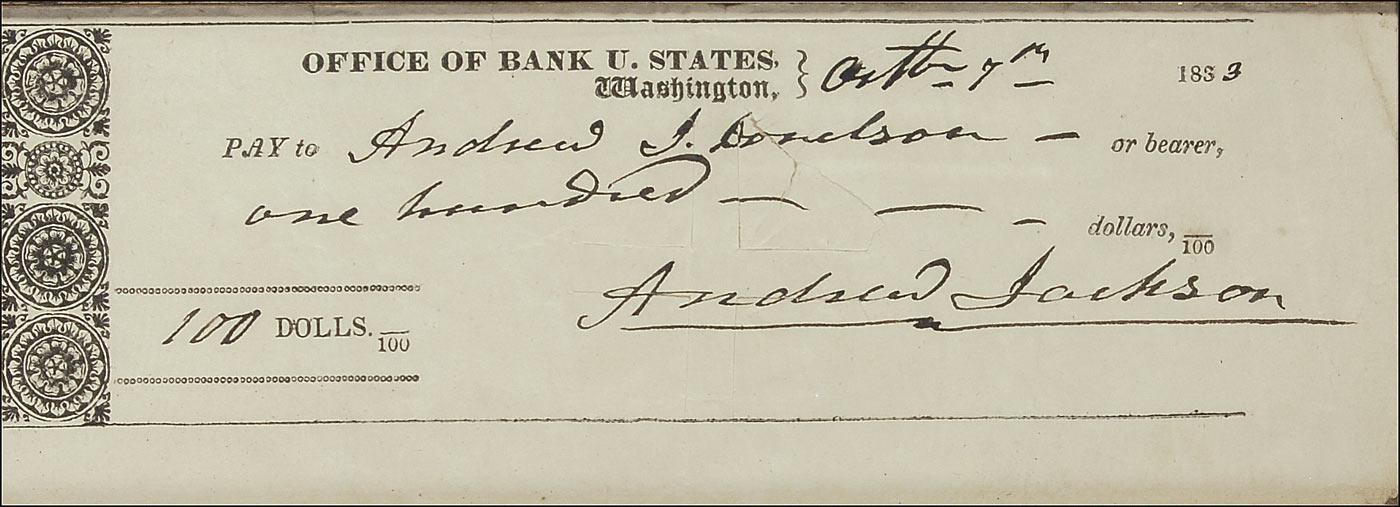 OFFICE OF BANK U. STATES, } Octbr 7th 1833
Washington,
PAY to Andrew J. Donelson — or bearer,
one hundred — — - dollars, /100
Andrew Jackson
100 DOLLS. /100